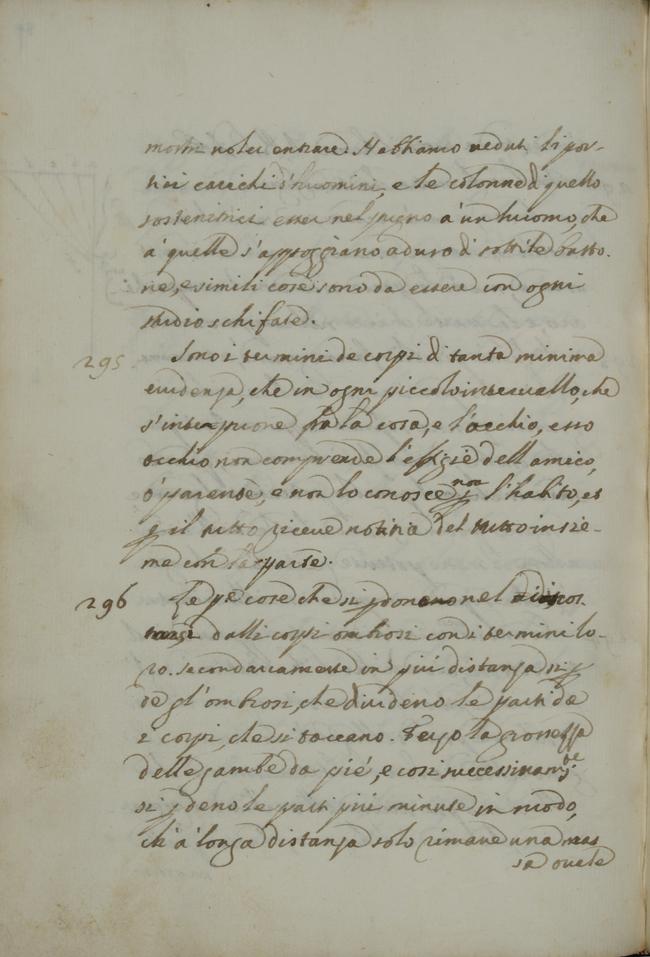 morti voler entrare. Habbiamo veduti li por-
tici carichi d'huomini, e le colonne di quello
sostenitrici esser nel pugno à un huomo, che
à quelle s'appoggiano ad uso di sottile basto-
ne, e simili cose sono da essere con ogni
studio schifate.
295 Sono i termini de corpi di tanta minima
evidenza, che in ogni piccolo intervallo, che
s'interpone fra la cosa, e l'occhio, esso
occhio non comprende l'effigie dell'amico,
ò parente, e non lo conosce, non p l'habito, et
p il tutto riceve notitia del tutto insie-
me con la parte.
296 Le pe cose che si pdono nel discos
tarsi dalli corpi ombrosi con i termini lo-
ro. secondariamente in più distanza si p
de gl'ombrosi, che dividono le parti de
i corpi, che si toccano. Terzo la grossezza
delle gambe da piè, e cosi successivamte
si pdeno le parti più minute in modo,
ch'à longa distanza solo rimane una mas
sa ovale